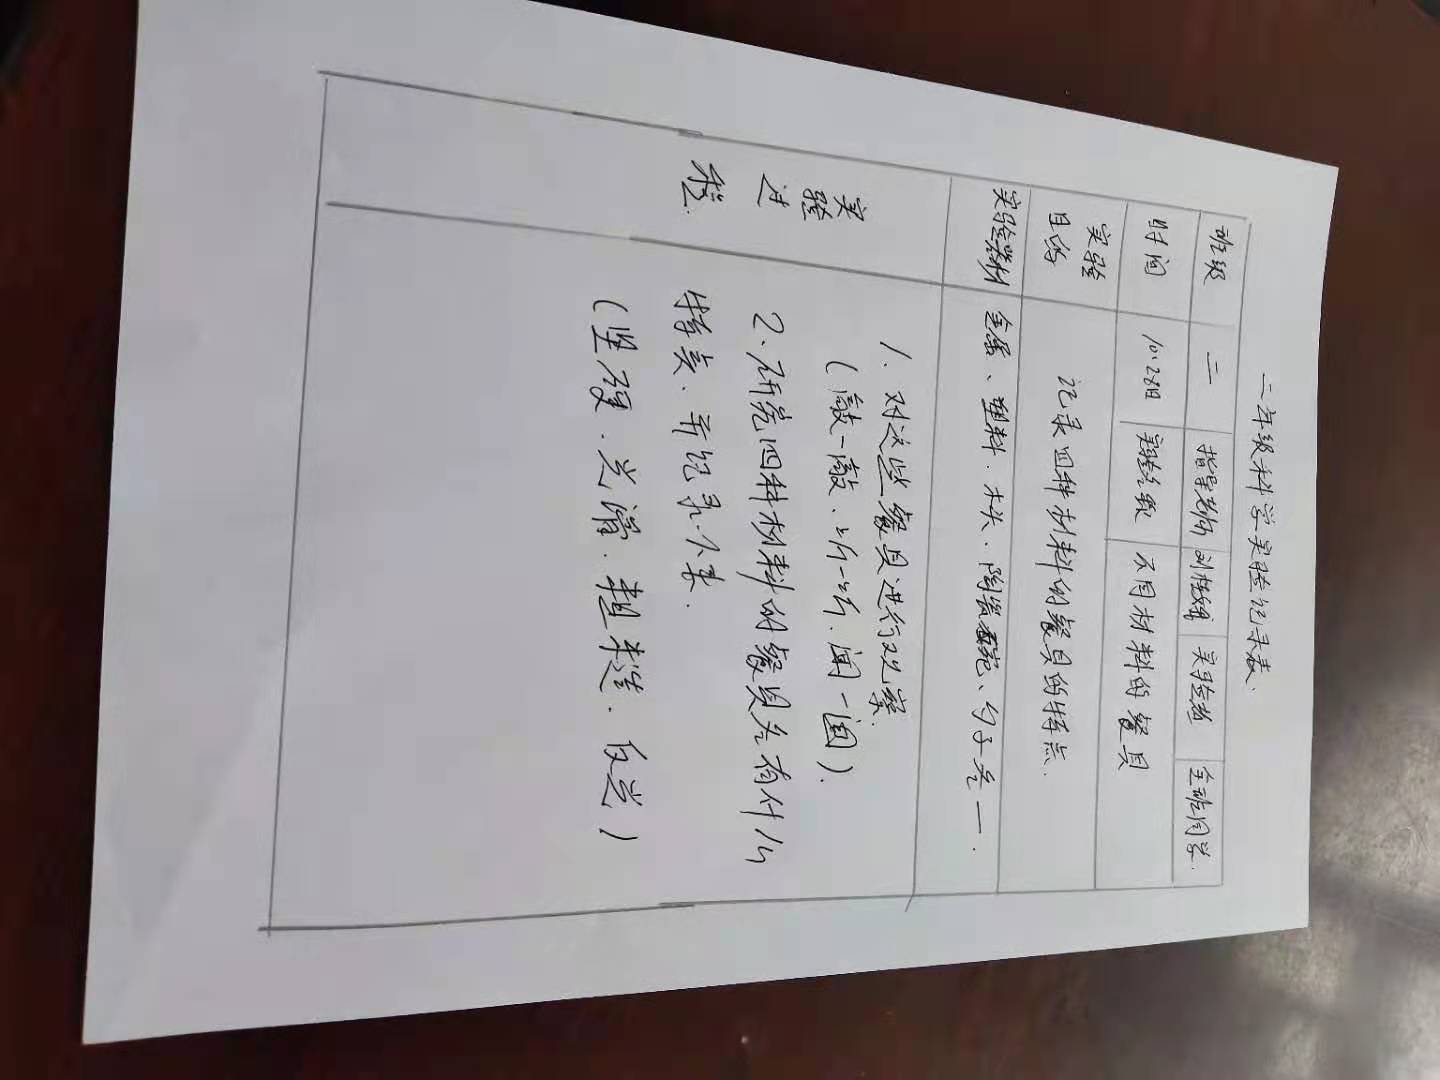 二年级科学实验记录表.
班级 二 指导老师 实验者 全班同学.
时间 10.28日 实验名称 不同材料的餐具
实验
目的
记录四种材料的餐具的特点.
实验器材 金属、塑料、木头、陶瓷碗、勺子各一.
实
验
过
程.
1. 对这些餐具进行观察.
(敲一敲、听一听、闻一闻).
2. 研究四种材料的餐具各有什么
特点.并记录下来.
(坚硬.光滑.粗糙.反光)